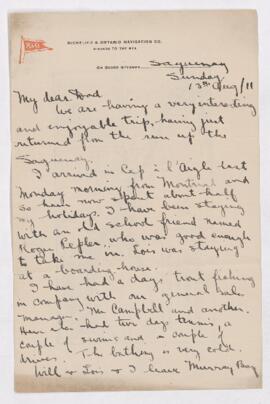 RICHELIEU & ONTARIO NAVIGATION CO.
NIAGARA TO THE SEA
R & O
ON BOARD STEAMER Saguenay
Sunday
13th Aug/11
My dear Dad
We are having a very interesting
and enjoyable trip, having just
returned from the run up the
Saguenay.
I arrived in Cap à l'Aigle last
Monday morning from Montreal and
so have now spent about half
my holidays. I have been staying
with an old school friend named
Roger Pepler, who was good enough
to take me in. Lois was staying
at a boarding-house.
I have had a days trout fishing
in company with our general sales
manager, Mr Campbell and another.
Have also had two days tennis, a
couple of swims and a couple of
drives. The bathing is very cold.
Will & Lois & I leave Murray Bay